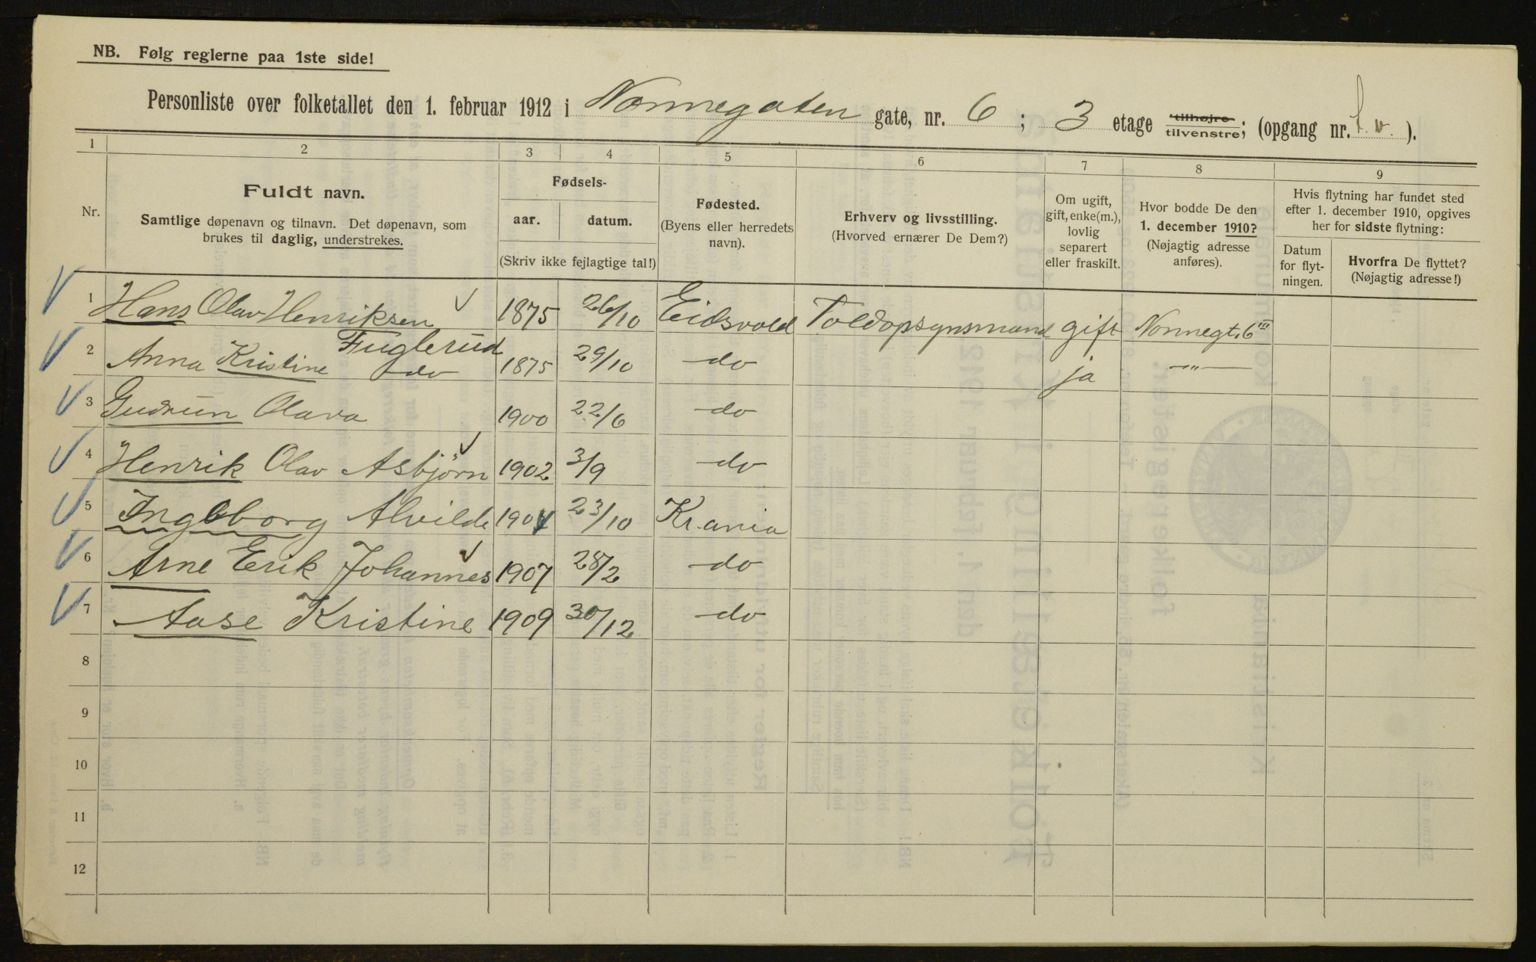 NB. Følg reglerne paa 1ste side!
Personliste over folketallet den 1. februar 1912 i Nonnegaten gate, nr. 6 ; 3 etage tilhøjre tilvenstre; (opgang nr. t.v. ).
1 2 3 4 5 6 7 8 9
Nr.
Fuldt navn.
Samtlige døpenavn og tilnavn. Det døpenavn, som
brukes til daglig, understrekes.
Fødsels-
aar. datum.
(Skriv ikke fejlagtige tal!)
Fødested.
(Byens eller herredets
navn).
Erhverv og livsstilling.
(Hvorved ernærer De Dem?)
Om ugift,
gift, enke(m.),
lovlig
separert
eller fraskilt.
Hvor bodde De den
1. december 1910?
(Nøjagtig adresse
anføres).
Hvis flytning har fundet sted
efter 1. december 1910, opgives
her for sidste flytning:
Datum
for flyt-
ningen.
Hvorfra De flyttet?
(Nøjagtig adresse!)
1 Hans Olav Henriksen 1875 26/10 Eidsvold Toldopsynsmand gift Nonnegt. 6 III
Fuglerud
2 Anna Kristine do 1875 29/10 do ja —"—
3 Gudrun Olava 1900 22/6 do
4 Henrik Olav Asbjørn 1902 3/9 do
5 Ingeborg Alvilde 1904 23/10 Krania
6 Arne Erik Johannes 1907 28/2 do
7 Aase Kristine 1909 30/12 do
8
9
10
11
12